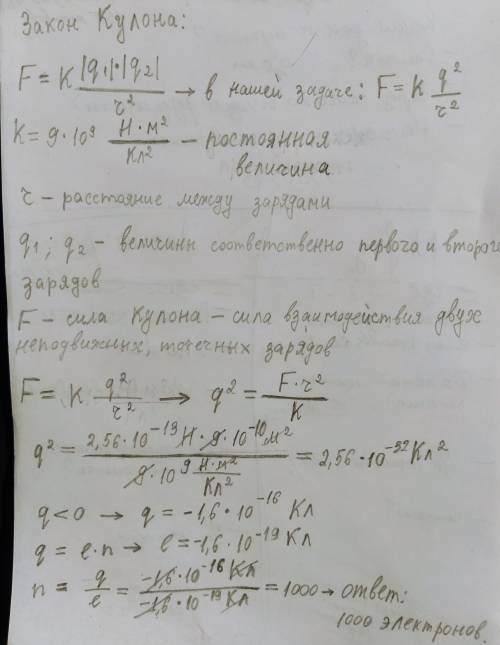 Закон Кулона:
F = K |q₁|·|q₂| / r² → в нашей задаче: F = K q² / r²
K = 9·10⁹ Н·м² / Кл² – постоянная
величина
r – расстояние между зарядами
q₁; q₂ – величины соответственно первого и второго
зарядов
F – сила Кулона – сила взаимодействия двух
неподвижных, точечных зарядов
F = K q² / r² → q² = F·r² / K
q² = 2,56·10⁻¹³ Н·9·10⁻¹⁰ м² / 9·10⁹ Н·м² / Кл² = 2,56·10⁻³² Кл²
q<0 → q = -1,6·10⁻¹⁶ Кл
q = e·n → e = -1,6·10⁻¹⁹ Кл
n = q / e = -1,6·10⁻¹⁶ Кл / -1,6·10⁻¹⁹ Кл = 1000 → ответ:
1000 электронов.